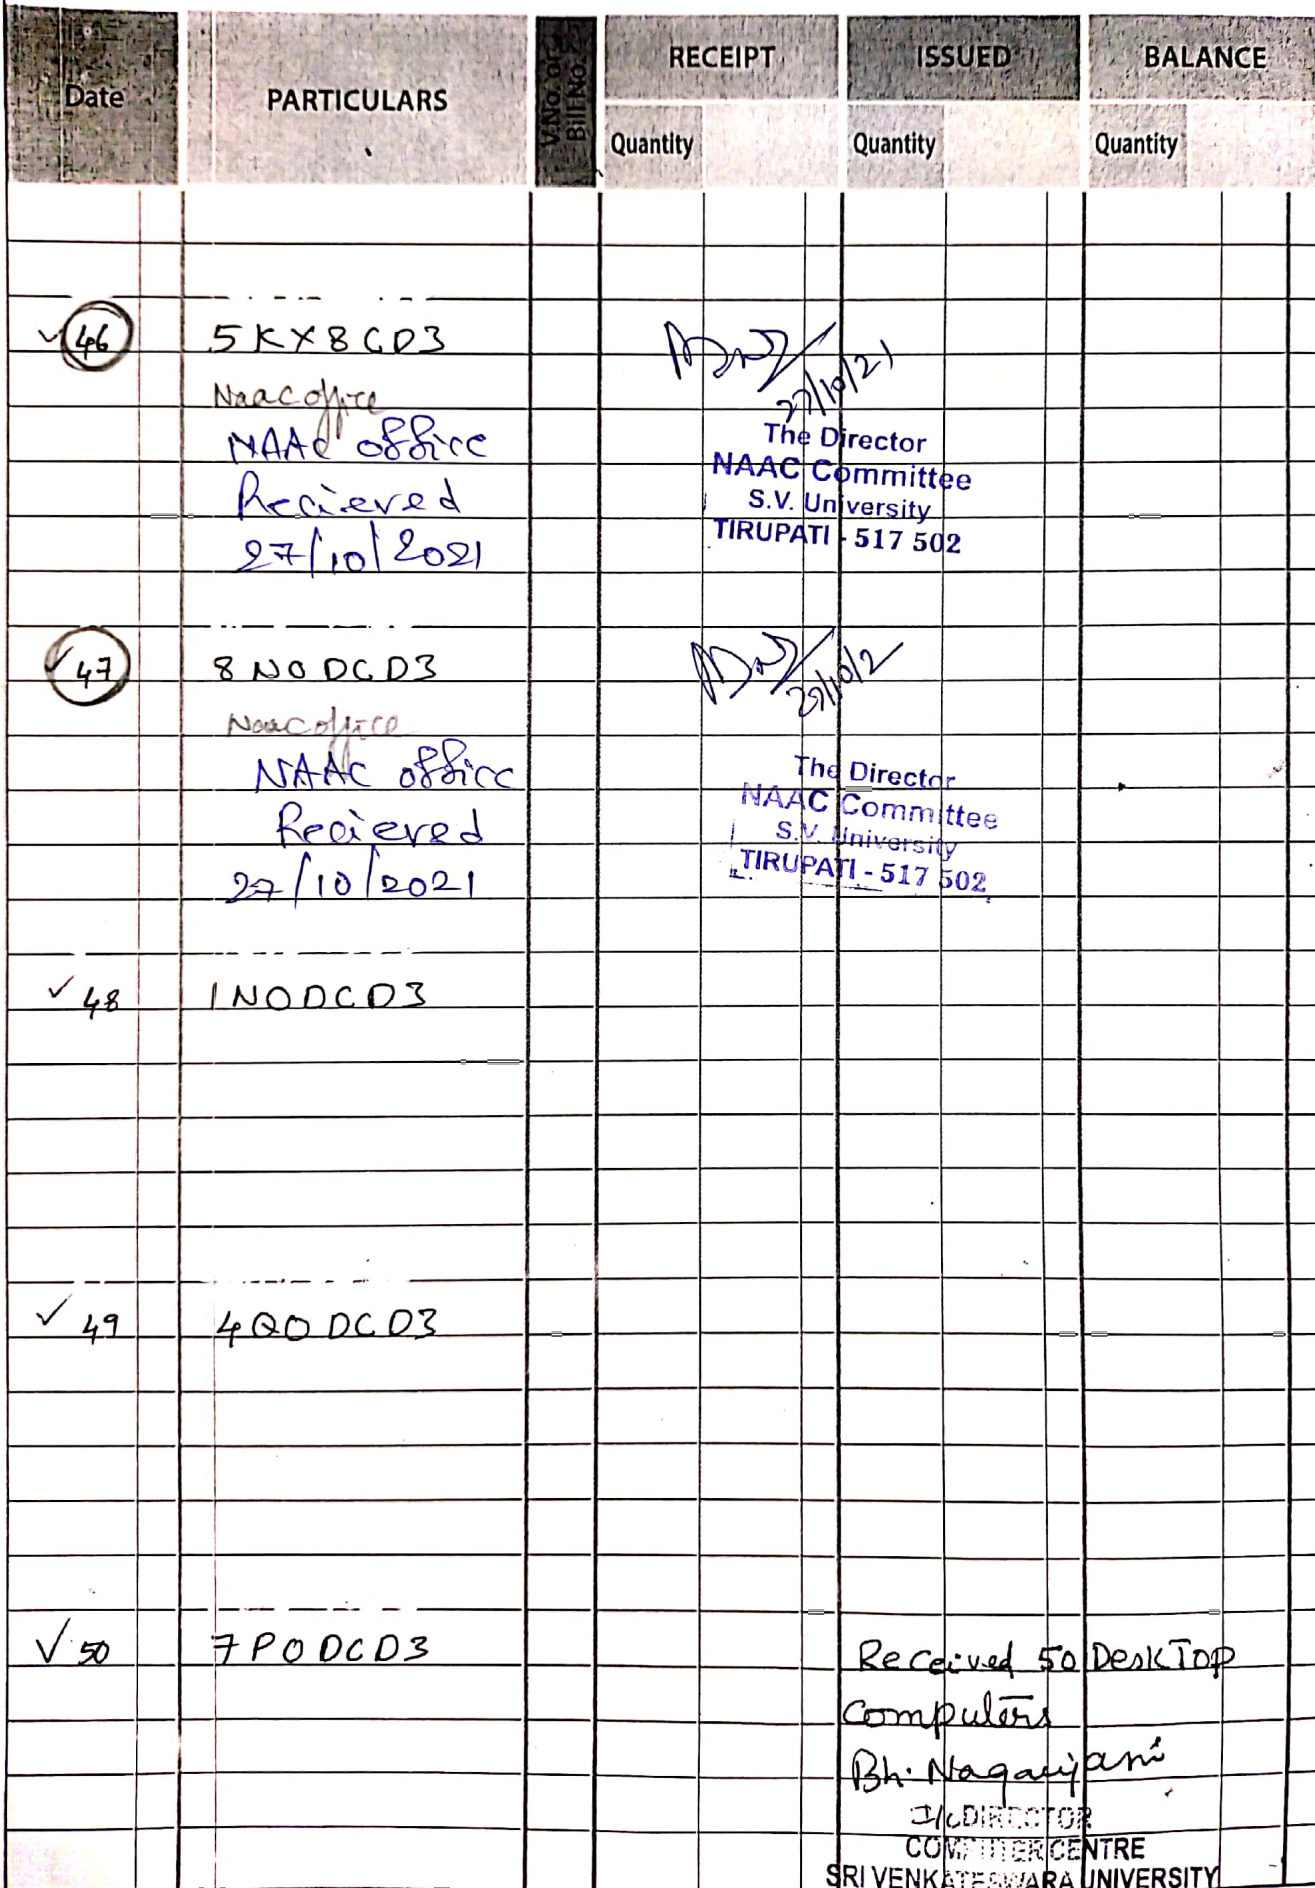 Date PARTICULARS V.No. or Bill No. RECEIPT ISSUED BALANCE
Quantity Quantity Quantity
46 5KX8CD3
Naac office
NAAC office
Recieved
27/10/2021
27/10/21
The Director
NAAC Committee
S.V. University
TIRUPATI - 517 502
47 8NODCD3
Naac office
NAAC office
Recieved
27/10/2021
27/10/2
The Director
NAAC Committee
S.V. University
TIRUPATI - 517 502
48 1NODCD3
49 4QODCD3
50 7PODCD3
Received 50 DeskTop
Computers
Bh. Nagarjani
I/c DIRECTOR
COMPUTER CENTRE
SRI VENKATESWARA UNIVERSITY